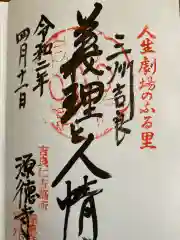 人生劇場のふる里
三州吉良
義理と人情
令和二年
四月十一日
源徳寺